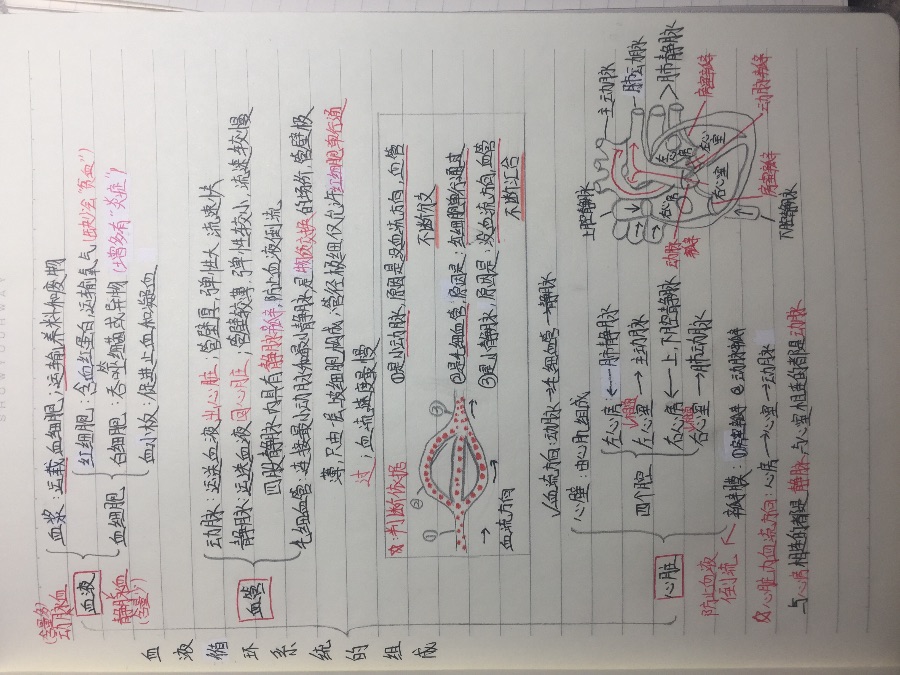 血液循环系统的组成
血液
(含氧多)
动脉血
静脉血
(含氧少)
血浆：运载血细胞；运输养料和废物
血细胞
红细胞：含血红蛋白，运输氧气(缺少会"贫血")
白细胞：吞噬细菌或异物(增多有"炎症")
血小板：促进止血和凝血
血管
动脉：运送血液出心脏；管壁厚，弹性大，流速快
静脉：运送血液回心脏；管壁较薄，弹性较小，流速较慢
四肢静脉内具有静脉瓣，防止血液倒流
毛细血管：连接最小动脉和最小静脉是物质交换的场所，管壁极
薄，只由一层细胞构成，管径极细仅允许红细胞单行通
过；血流速度最慢
判断依据
①是小动脉，原因是：没血流方向，血管
不断分支
②是毛细血管，原因是：红细胞单行通过
③是小静脉，原因是：没血流方向，血管
不断汇合
①
②
③
血流方向
√血流方向：动脉→毛细血管→静脉
心脏
心壁：由心肌组成
四个腔
左心房←肺静脉
左心室→主动脉
右心房←上、下腔静脉
右心室→肺动脉
瓣膜：①房室瓣 ②动脉瓣
防止血液
倒流
心脏内血流方向：心房→心室→动脉
与心房相连的都是静脉，与心室相连的都是动脉
主动脉
肺动脉
肺静脉
房室瓣
动脉瓣
上腔静脉
左心房
左心室
右心房
右心室
动脉瓣
房室瓣
下腔静脉